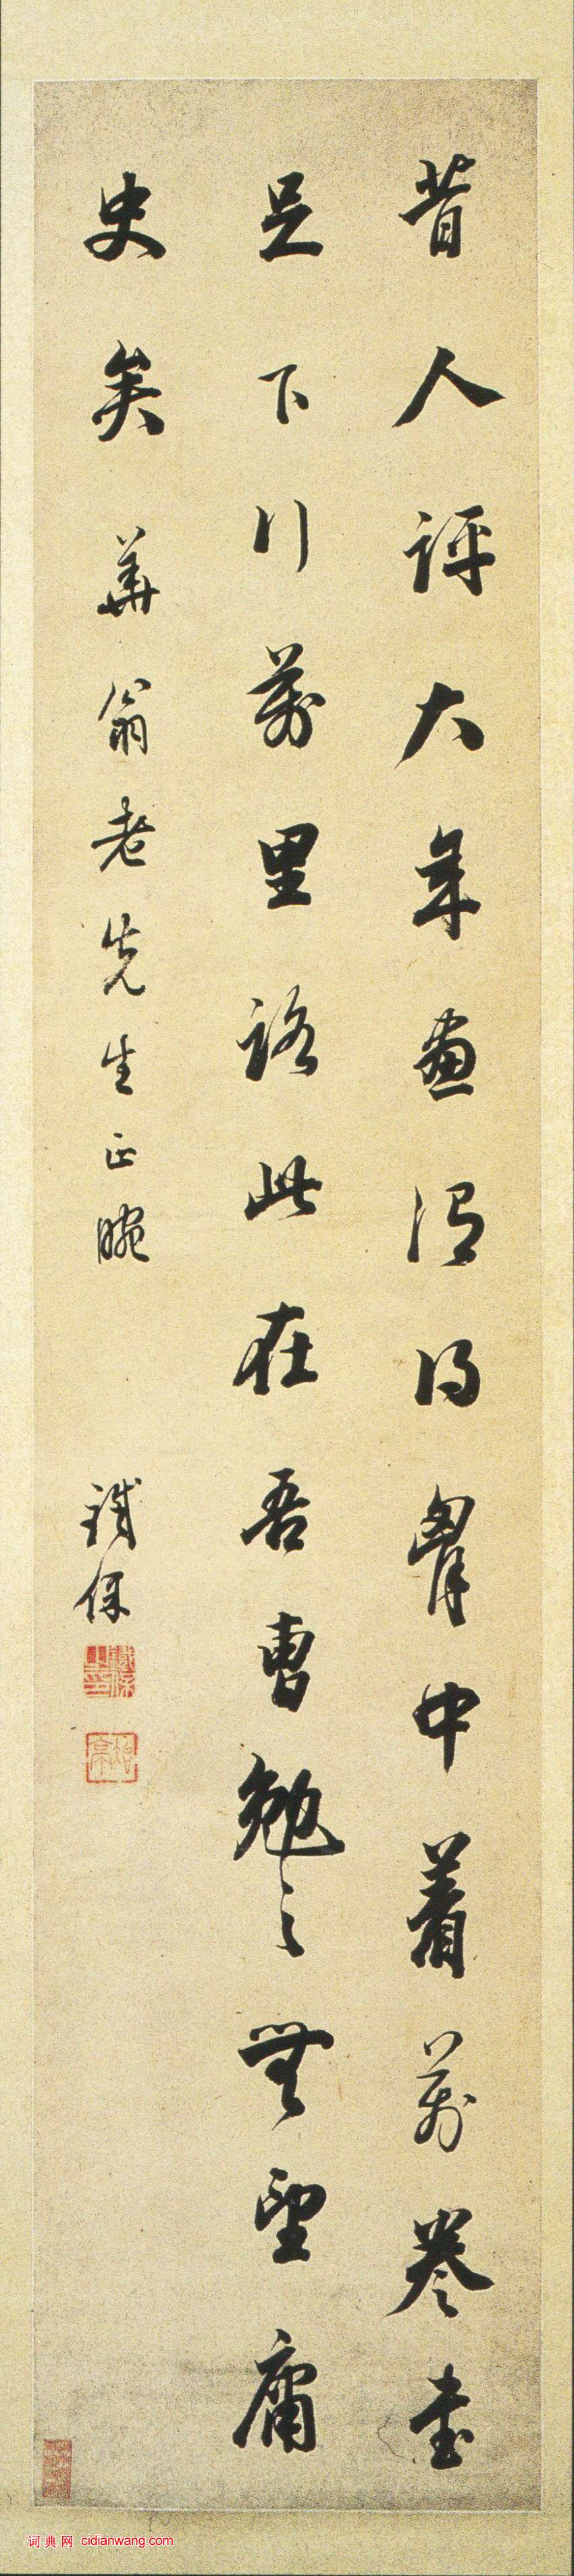 昔人評大年畫謂得胷中着萬卷書
足下行萬里路此在吾曹勉之無望庸
史矣 華翁老先生正腕
鐵保
词典网 cidianwang.com